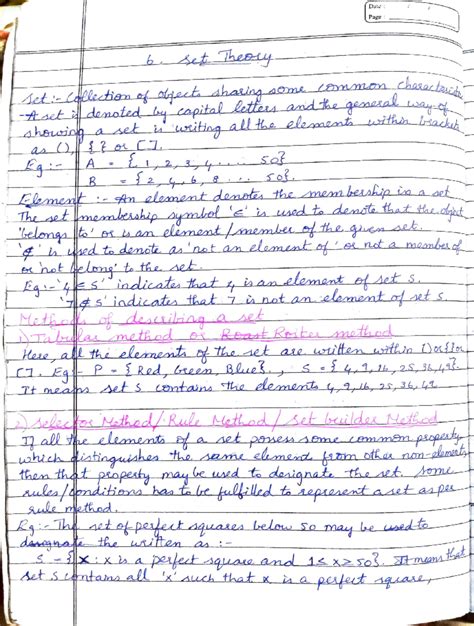 Date :
Page :
6. Set Theory
Set :- Collection of objects sharing some common characteristics
A set is denoted by capital letters and the general way of
showing a set is writing all the elements within brackets
as (), { } or [ ].
Eg :- A = {1, 2, 3, 4 .... 50}.
B = {2, 4, 6, 8 ... 50}.
Element :- An element denotes the membership in a set
The set membership symbol '∈' is used to denote that the object
'belongs to' or is an element/member of the given set.
'∉' is used to denote as 'not an element of' or not a member of
or 'not belong' to the set.
Eg :- '4 ∈ S' indicates that 4 is an element of set S.
'7 ∉ S' indicates that 7 is not an element of set S.
Methods of describing a set
1) Tabular method or Roast Roster method
Here, all the elements of the set are written within () or { } or
[ ]. Eg :- P = {Red, Green, Blue}., S = {4, 9, 16, 25, 36, 49}.
It means set S contains the elements 4, 9, 16, 25, 36, 49.
2) Selector Method/Rule Method/Set builder Method
If all the elements of a set possess some common property
which distinguishes the same elements from other non-elements,
then that property may be used to designate the set. Some
rules/conditions has to be fulfilled to represent a set as per
rule method.
Eg :- The set of perfect squares below 50 may be used to
designate the written as :-
S = {x : x is a perfect square and 1 ≤ x ≥ 50}. It means that
set S contains all 'x' such that x is a perfect square,